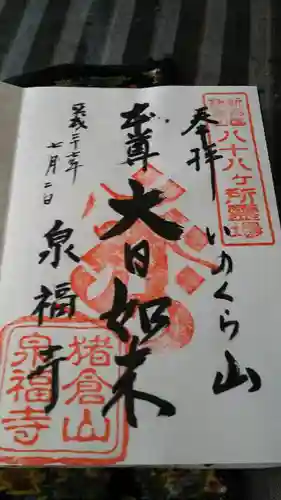 奉拝
いのくら山
本尊
大日如来
平成二十七年
七月二日
泉福寺
八十八ヶ所霊場
猪倉山
泉福寺